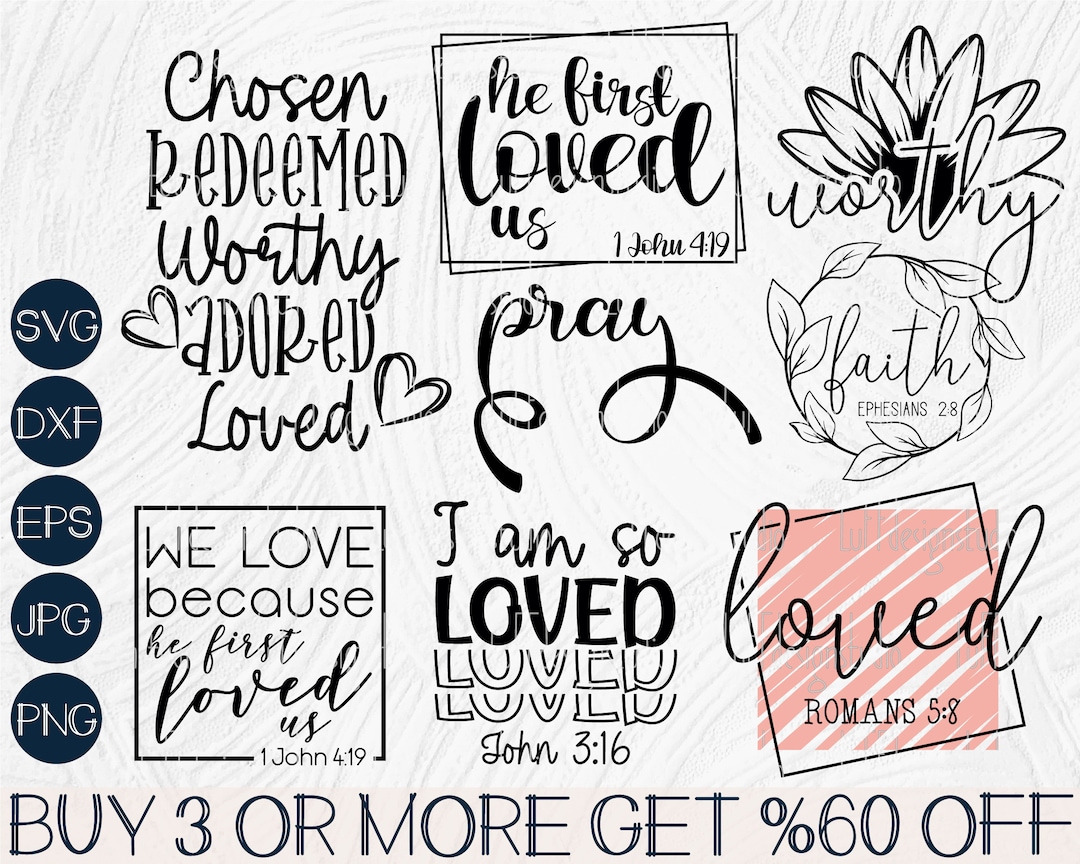 Chosen
REDEEMED
Worthy
ADORED
Loved
he first
loved
us
1 John 4:19
worthy
pray
faith
EPHESIANS 2:8
SVG
DXF
EPS
JPG
PNG
WE LOVE
because
he first
loved
us
1 John 4:19
I am so
LOVED
LOVED
LOVED
John 3:16
loved
ROMANS 5:8
BUY 3 OR MORE GET %60 OFF